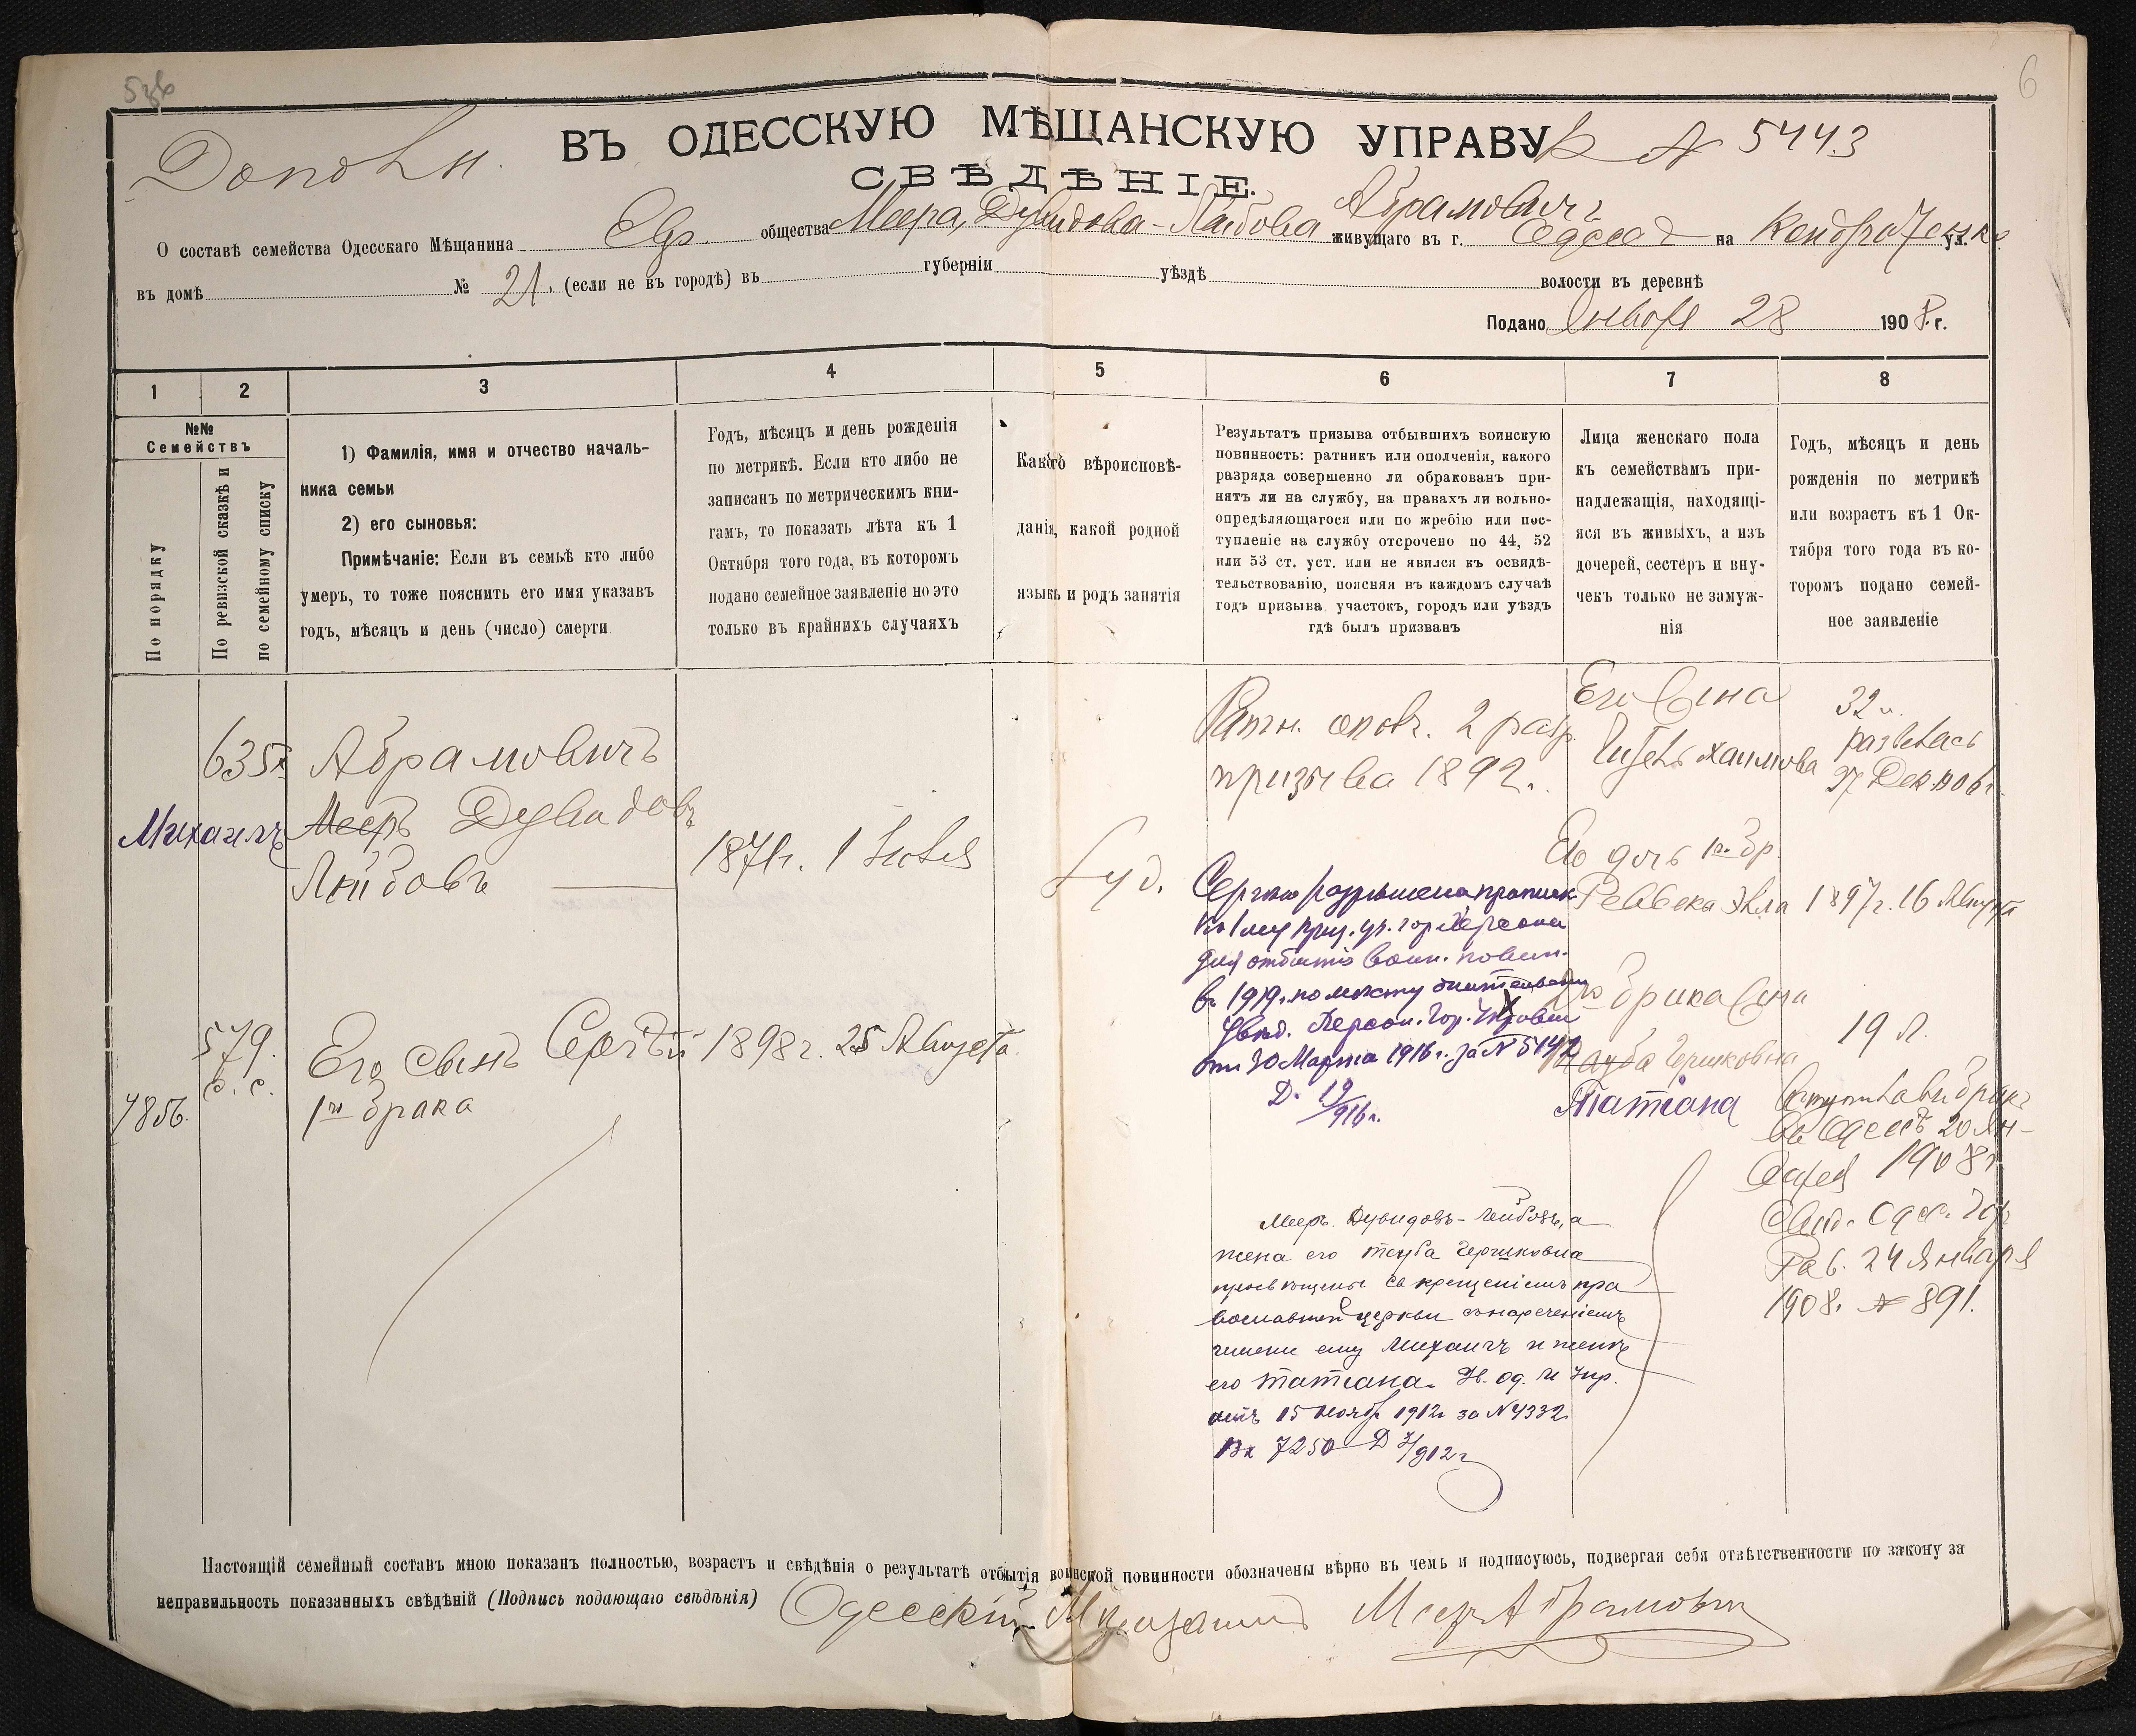 6
ВЪ ОДЕССКУЮ МѢЩАНСКУЮ УПРАВУ
№ 5443
СВѢДѢНІЕ.
О составѣ семейства Одесскаго Мѣщанина Евр. общества Меера, Дувидова-Лейбова Абрамовичъ живущаго въ г. Одессѣ на ул.
въ домѣ № 21. (если не въ городѣ) въ губерніи уѣздѣ волости въ деревнѣ
Подано Января 28 1908. г.
1 2 3 4 5 6 7 8
№№
Семействъ
По порядку
По ревизской сказкѣ и
по семейному списку
1) Фамилія, имя и отчество началь-
ника семьи
2) его сыновья:
Примѣчаніе: Если въ семьѣ кто либо
умеръ, то тоже пояснить его имя указавъ
годъ, мѣсяцъ и день (число) смерти
Годъ, мѣсяцъ и день рожденія
по метрикѣ. Если кто либо не
записанъ по метрическимъ кни-
гамъ, то показать лѣта къ 1
Октября того года, въ котором
подано семейное заявленіе но это
только въ крайнихъ случаяхъ
Какого вѣроисповѣ-
данія, какой родной
языкъ и родъ занятія
Результатъ призыва отбывшихъ воинскую
повинность: ратникъ или ополченія, какого
разряда совершенно ли обракованъ при-
нятъ ли на службу, на правахъ ли вольно-
опредѣляющагося или по жребію или пос-
тупленіе на службу отсрочено по 44, 52
или 53 ст. уст. или не явился къ освидѣ-
тельствованію, поясняя въ каждомъ случаѣ
годъ призыва участокъ, городъ или уѣздъ
гдѣ былъ призванъ
Лица женскаго пола
къ семействамъ при-
надлежащія, находящі-
яся въ живыхъ, а изъ
дочерей, сестеръ и вну-
чекъ только не замуж-
нія
Годъ, мѣсяцъ и день
рожденія по метрикѣ
или возрастъ къ 1 Ок-
тября того года въ ко-
торомъ подано семей-
ное заявленіе
Абрамовичъ
Михаилъ Мееръ Дувидовъ
Лейбовъ
1871г. 1 Іюля
Іуд.
Ратн. ополч. 2 разр.
призыва 1892.
Его жена
Хаимова
32 л.
развелась
27 Дек 906г.
Его дочь 1го бр.
Реввека Экла 1897г. 16 Августа
Сергѣю разрѣшена приписк
къ 1му приз. уч. гор Херсона
для отбытія воин. повин.
въ 1919г. по мѣсту жительства
Увѣд. Херсон. Гор. Управы
отъ 30 Марта 1916г. за №
Д. 19/916г.
579.
с. с.
785б.
Его сынъ Сергѣй 1898г. 25 Августа
1го брака
2го брака жена
Тауба Гершковна
Татіана
19 л.
Вступилъ въ бракъ
въ Одессѣ 20 Ян-
варя 1908г.
Свид. Одес. Гор
Рав. 24 Января
1908. № 891.
Мееръ Дувидовъ-Лейбовъ, а
жена его Тауба Гершковна
просвѣщены св крещеніемъ пра
вославной церкви съ нареченіемъ
имени ему Михаилъ и женѣ
его Татіана. Ув. Од. М Упр.
отъ 15 Ноябр 1912г за № 4332
Вх 7250 Д 3/912г
Настоящій семейный составъ мною показанъ полностью, возрастъ и свѣдѣнія о результатѣ отбытія воинской повинности обозначены вѣрно въ чемъ и подписуюсь, подвергая себя отвѣтственности по закону за
неправильность показанныхъ свѣдѣній (Подпись подающаго свѣдѣнія) Одесскій Мѣщанинъ Меер Абрамовичъ